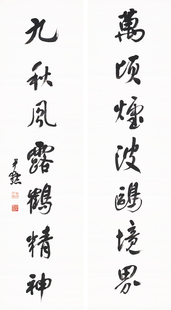 萬頃煙波鷗境界
九秋風露鶴精神
尹默